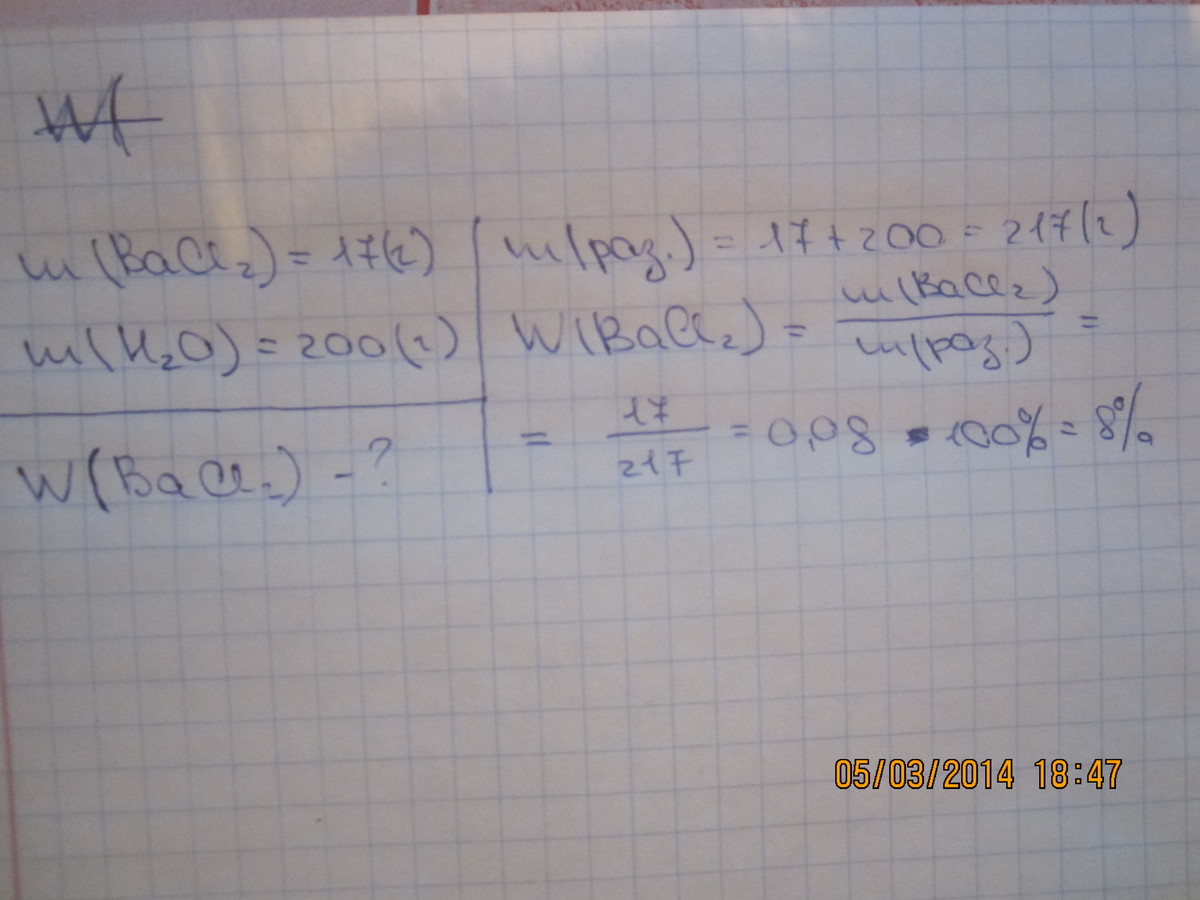 W(
m(BaCl₂) = 17(г)
m(H₂O) = 200(г)
W(BaCl₂) - ?
m(раз.) = 17 + 200 = 217(г)
W(BaCl₂) = m(BaCl₂) / m(раз.) =
= 17 / 217 = 0,08 · 100% = 8%
05/03/2014 18:47